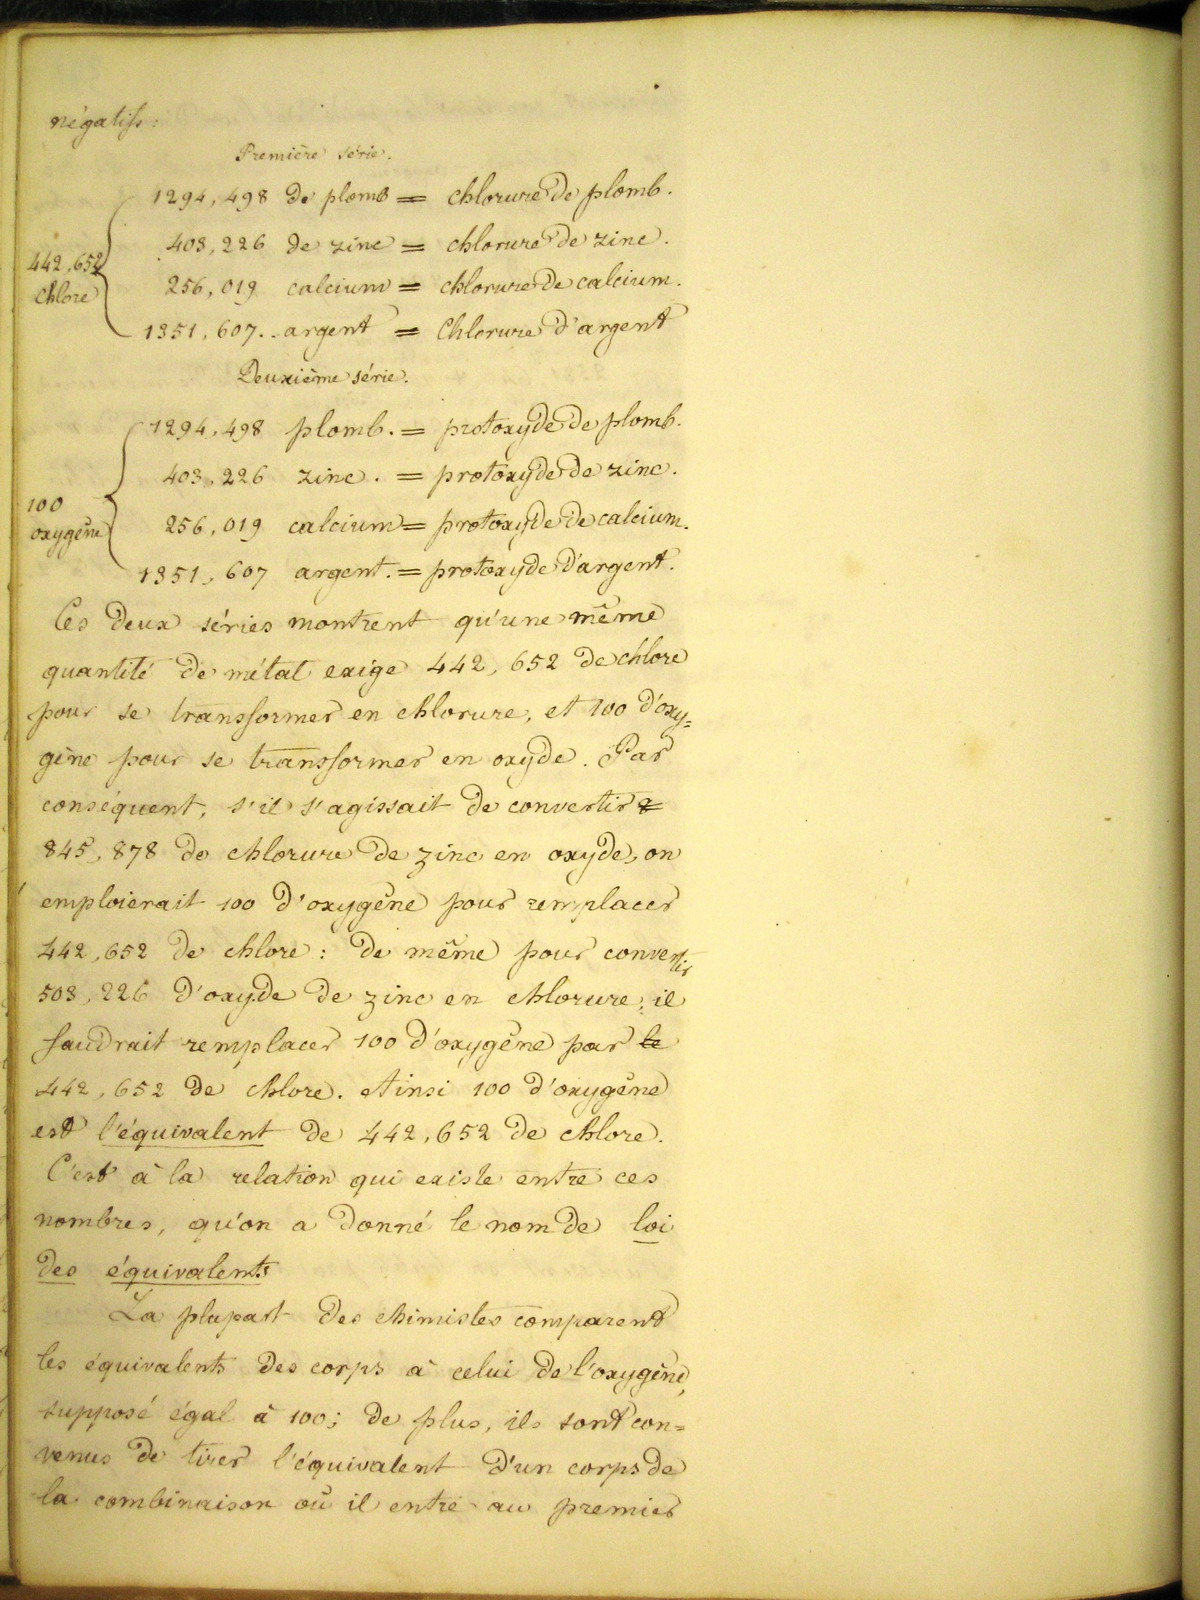 négatifs :
Première série.
1294,498 de plomb = chlorure de plomb.
403,226 de zinc = chlorure de zinc.
442,652 chlore
256,019 calcium = chlorure de calcium.
1351,607.. argent = Chlorure d'argent
Deuxième série.
1294,498 plomb. = protoxyde de plomb.
403,226 zinc. = protoxyde de zinc.
100 oxygène
256,019 calcium = protoxyde de calcium.
1351,607 argent. = protoxyde d'argent.
Ces deux séries montrent qu'une même
quantité de métal exige 442,652 de chlore
pour se transformer en chlorure, et 100 d'oxy=
gène pour se transformer en oxyde. Par
conséquent, s'il s'agissait de convertir
845,878 de chlorure de zinc en oxyde, on
emploierait 100 d'oxygène pour remplacer
442,652 de chlore : de même pour convertir
503,226 d'oxyde de zinc en chlorure, il
faudrait remplacer 100 d'oxygène par le
442,652 de chlore. Ainsi 100 d'oxygène
est l'équivalent de 442,652 de chlore.
C'est à la relation qui existe entre ces
nombres, qu'on a donné le nom de loi
des équivalents
La plupart des chimistes comparent
les équivalents des corps à celui de l'oxygène,
supposé égal à 100; de plus, ils sont con=
venus de tirer l'équivalent d'un corps de
la combinaison où il entre au premier